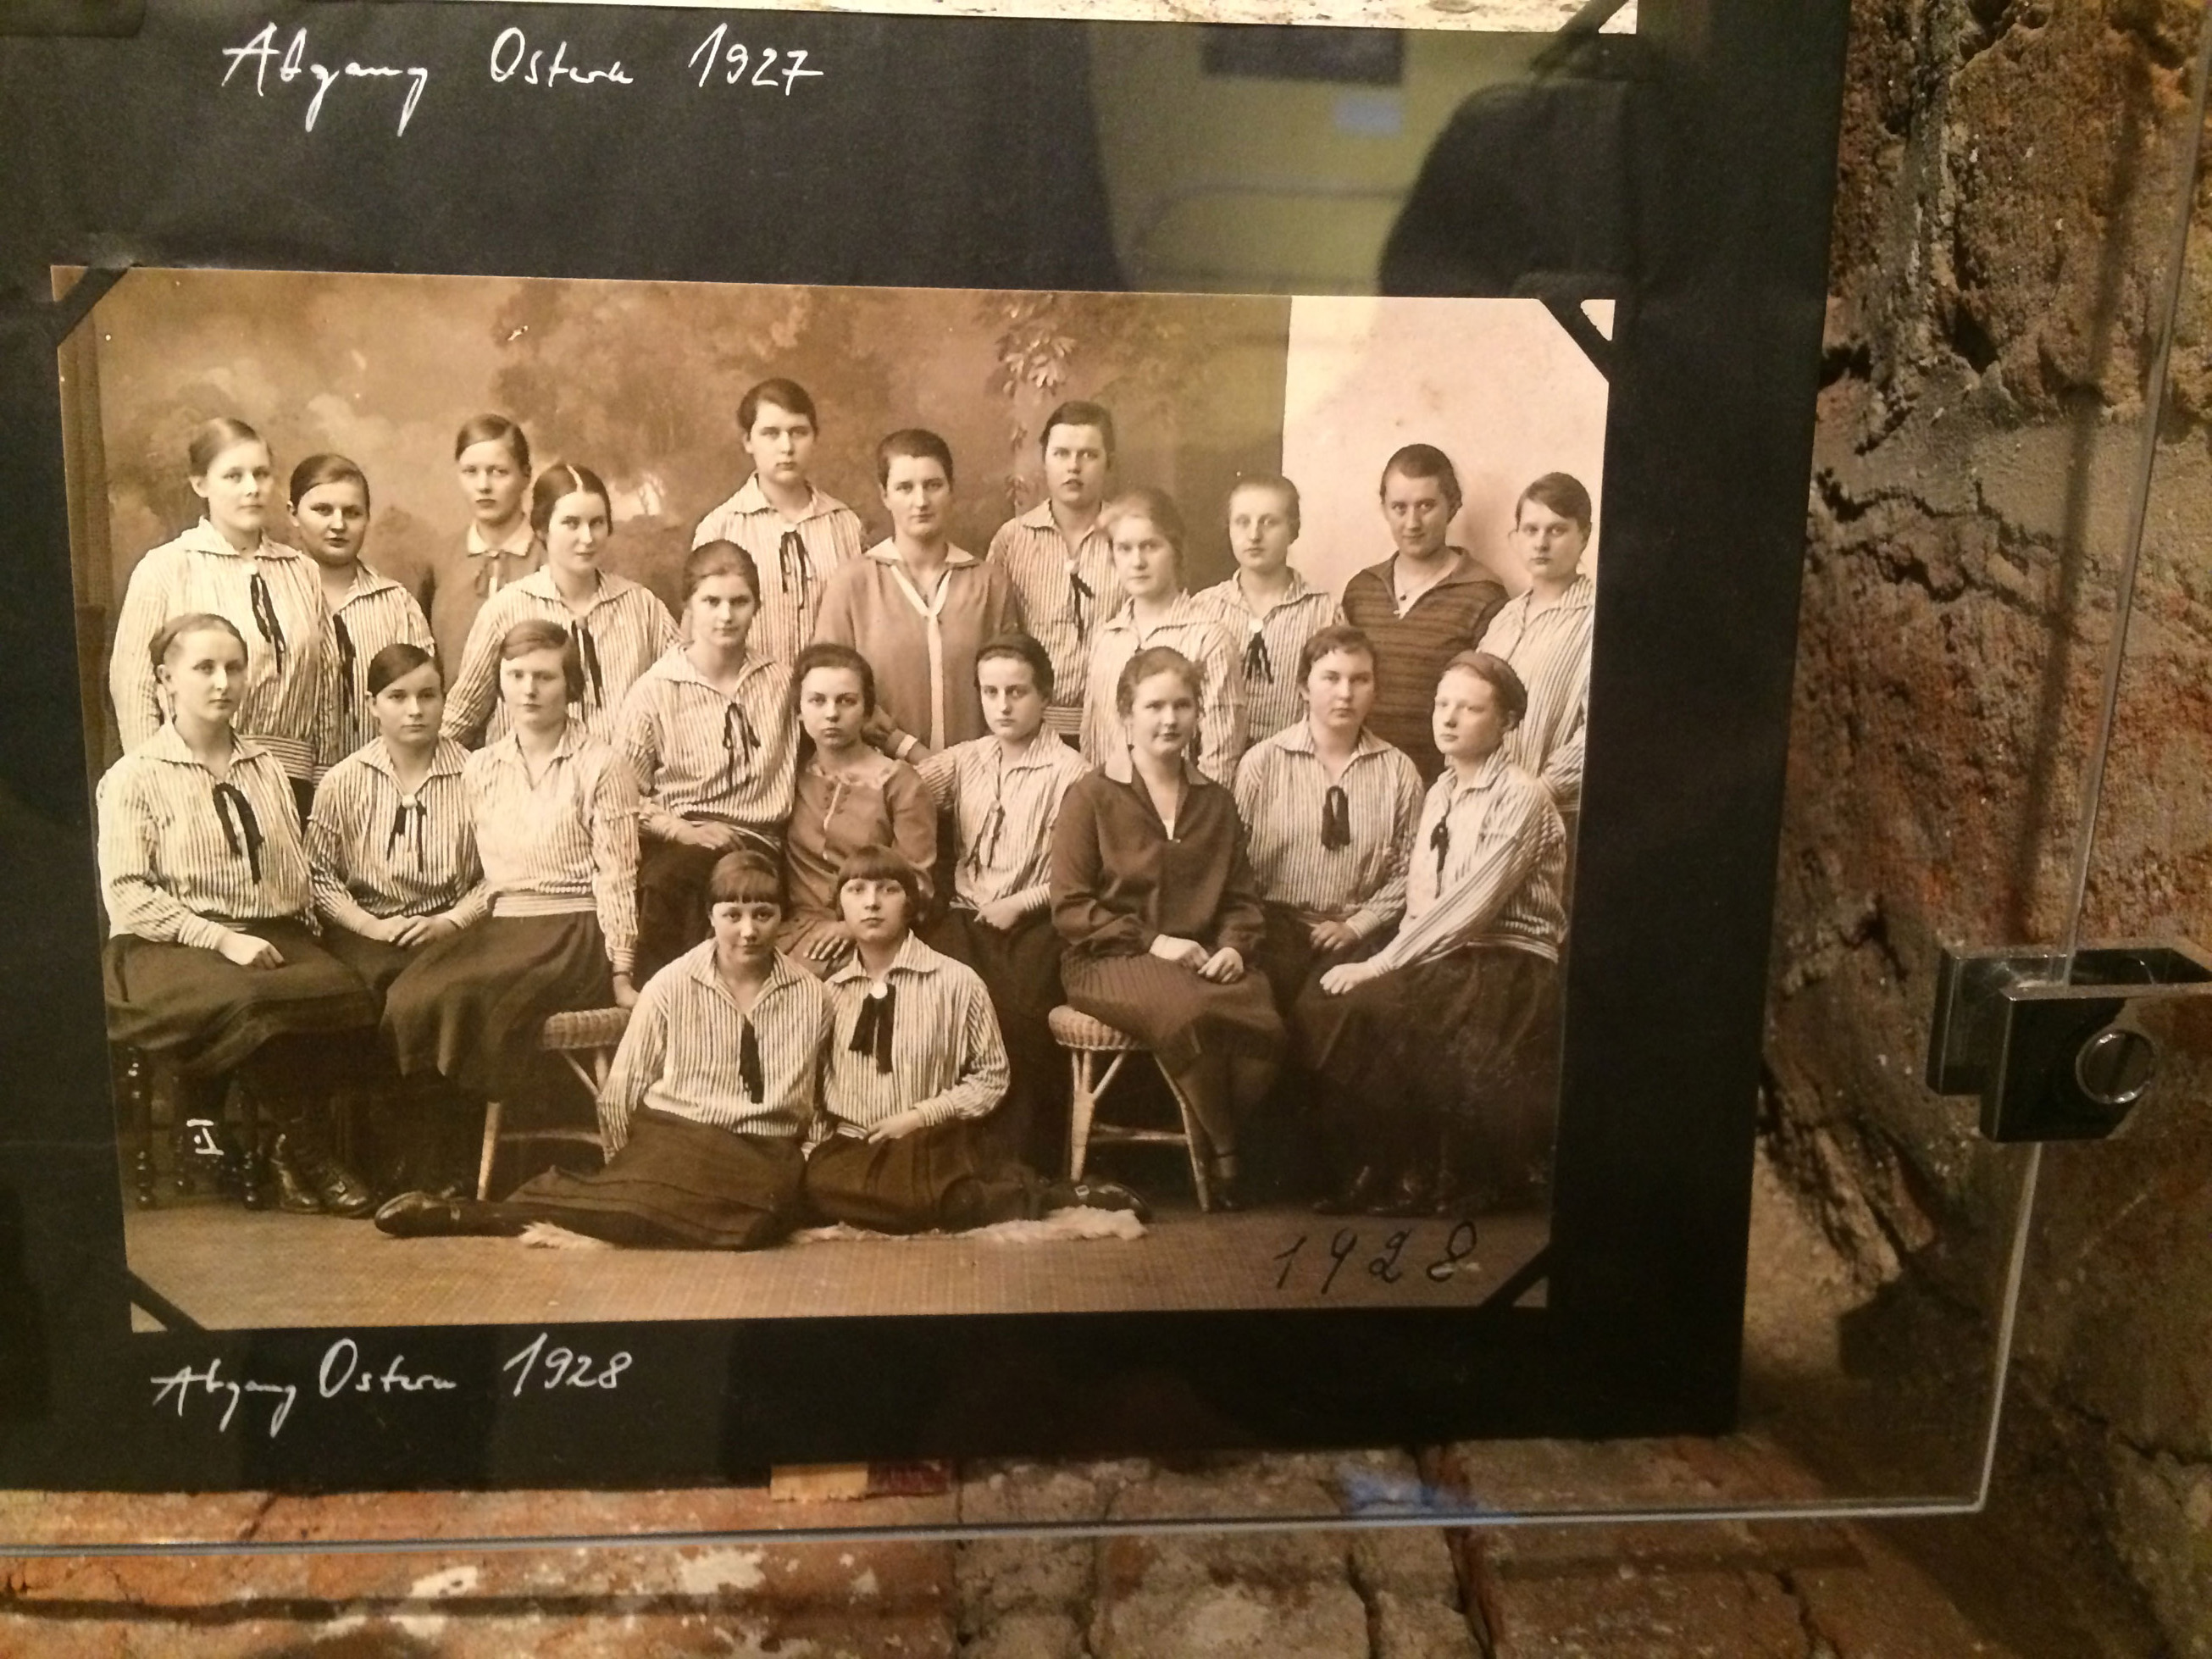 Abgang Ostern 1927
I
1928
Abgang Ostern 1928